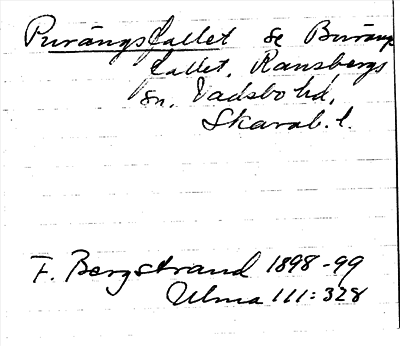 Purängsfallet se Buräng
fallet, Ransbergs
sn, Vadsbo hd,
Skarab. l.
F. Bergstrand 1898-99
Ulma 111:328